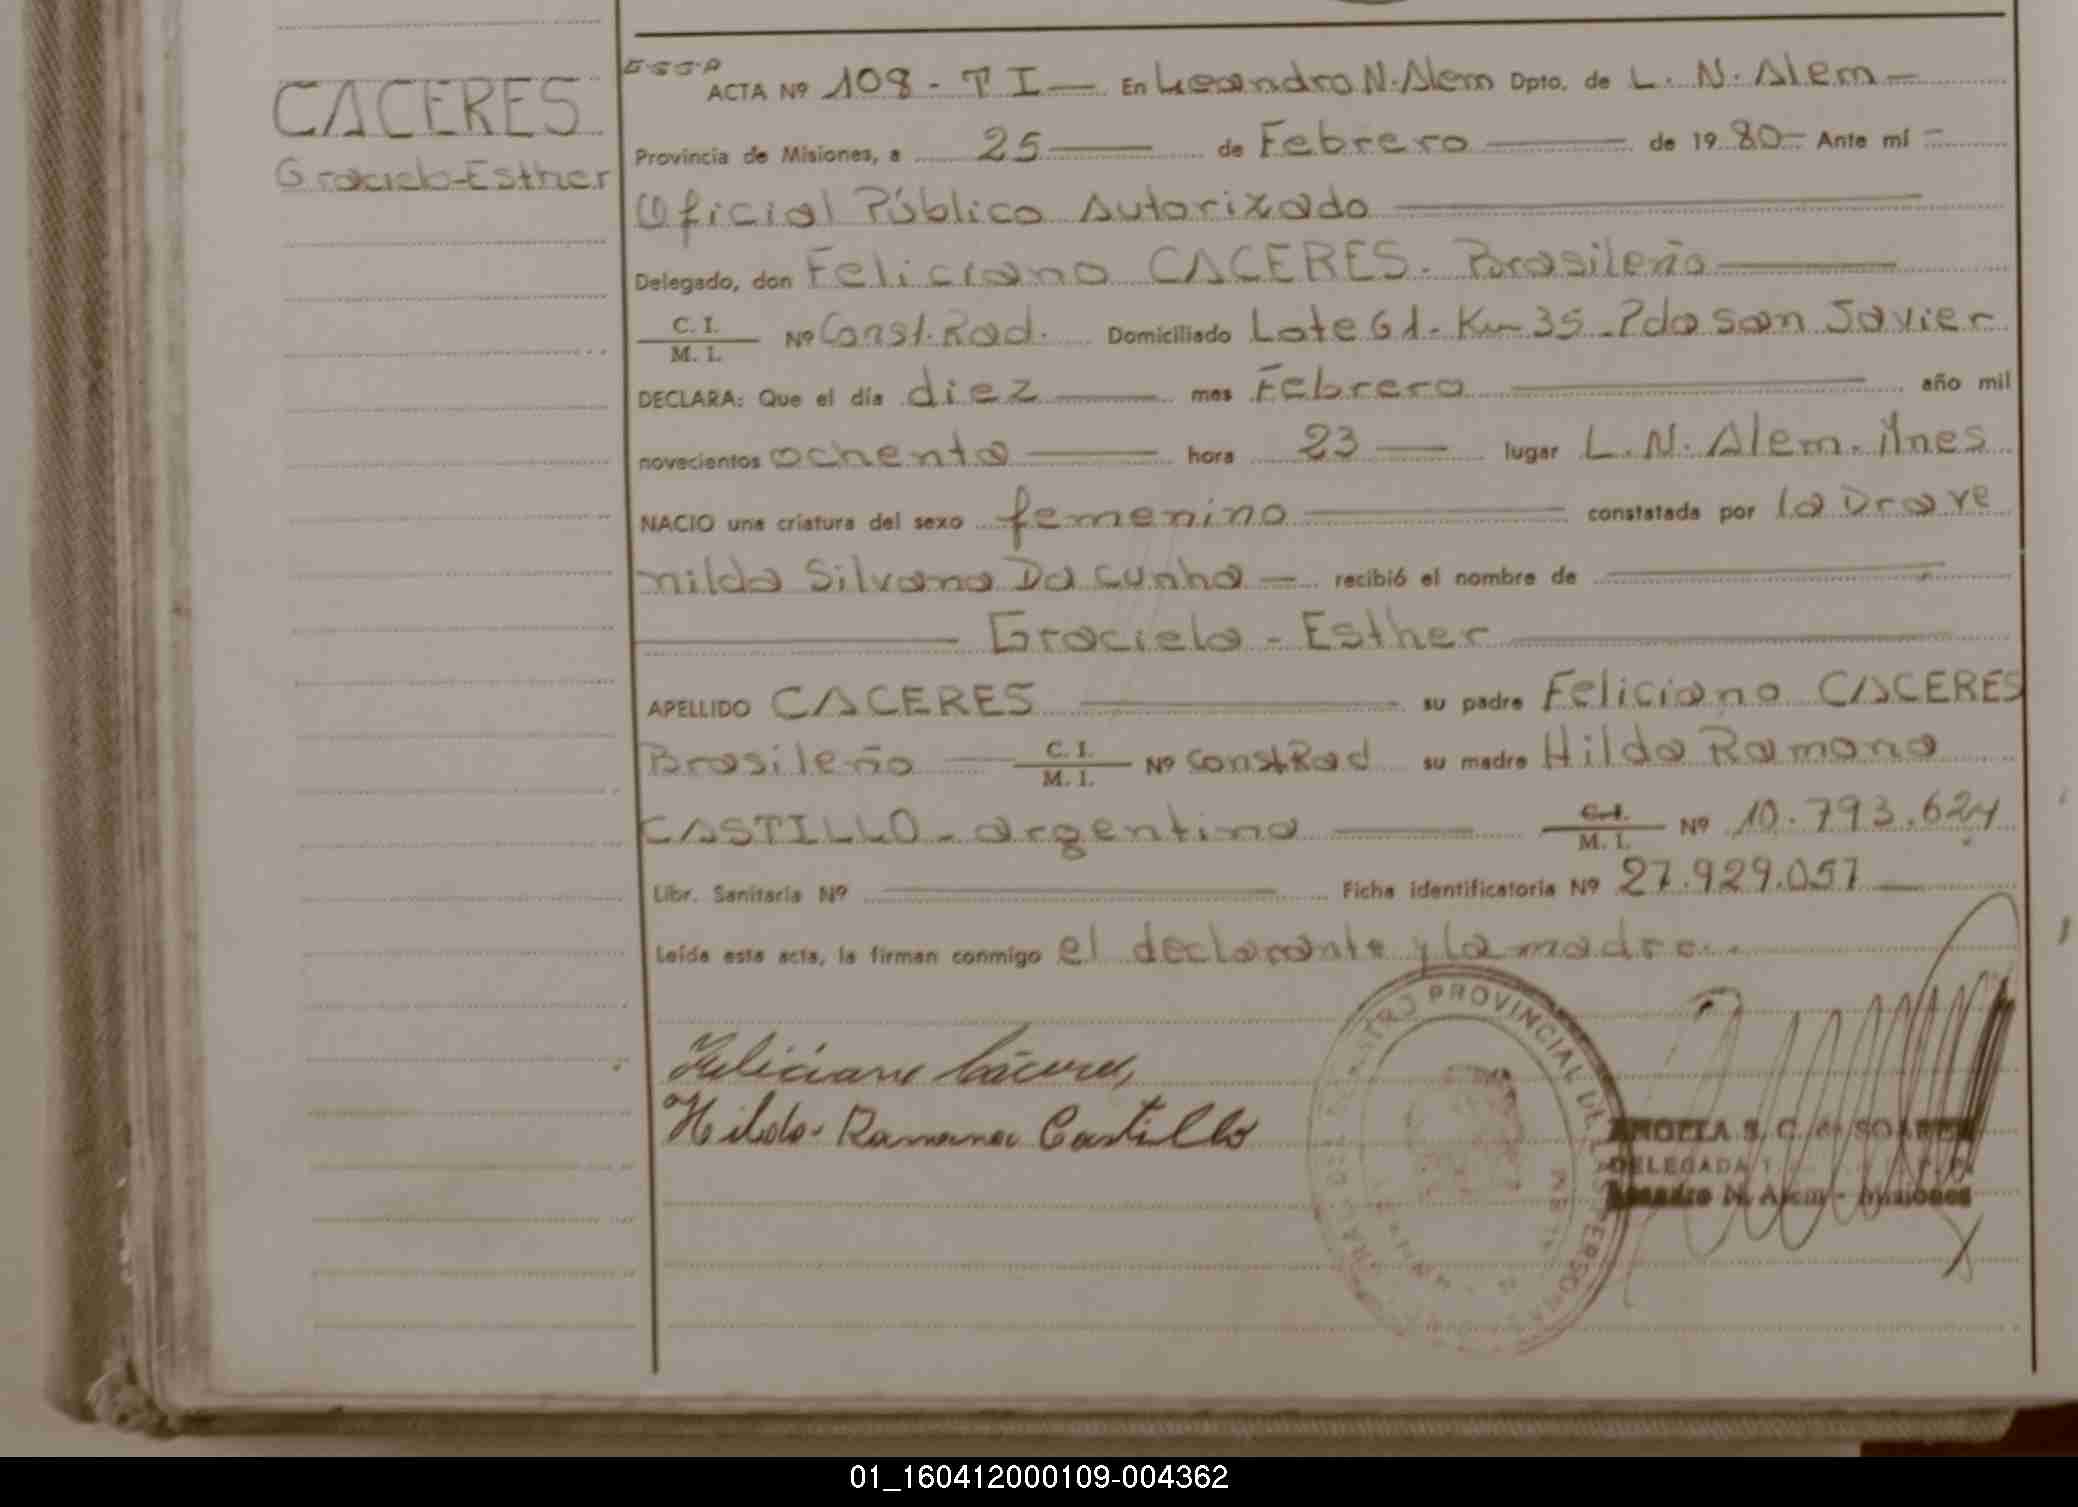 CACERES
Graciela-Esther
ACTA Nº 108 - T I — En Leandro N. Alem Dpto. de L. N. Alem —
Provincia de Misiones, a 25 — de Febrero — de 1980 — Ante mí —
Oficial Público Autorizado
Delegado, don Feliciano CACERES. Brasileño
C. I.
M. I. Nº Const. Rad. Domiciliado Lote 61 - Km 35 - Pda San Javier
DECLARA: Que el día diez — mes Febrero — año mil
novecientos ochenta — hora 23 — lugar L. N. Alem. Mnes
NACIO una criatura del sexo femenino — constatada por la Dra Ve
nilda Silvana Da Cunha — recibió el nombre de
Graciela - Esther
APELLIDO CACERES — su padre Feliciano CACERES
Brasileño — C. I.
M. I. Nº Const Rad su madre Hilda Ramona
CASTILLO - argentina — C. I.
M. I. Nº 10.793.624
Libr. Sanitaria Nº — Ficha identificatoria Nº 27.929.057 —
Leída esta acta, la firman conmigo el declarante y la madre.
Feliciano Cáceres,
Hilda Ramona Castillo
REGISTRO PROVINCIAL DE LAS PERSONAS
S. C. de SOAREZ
DELEGADA
Leandro N. Alem - Misiones
01_160412000109-004362